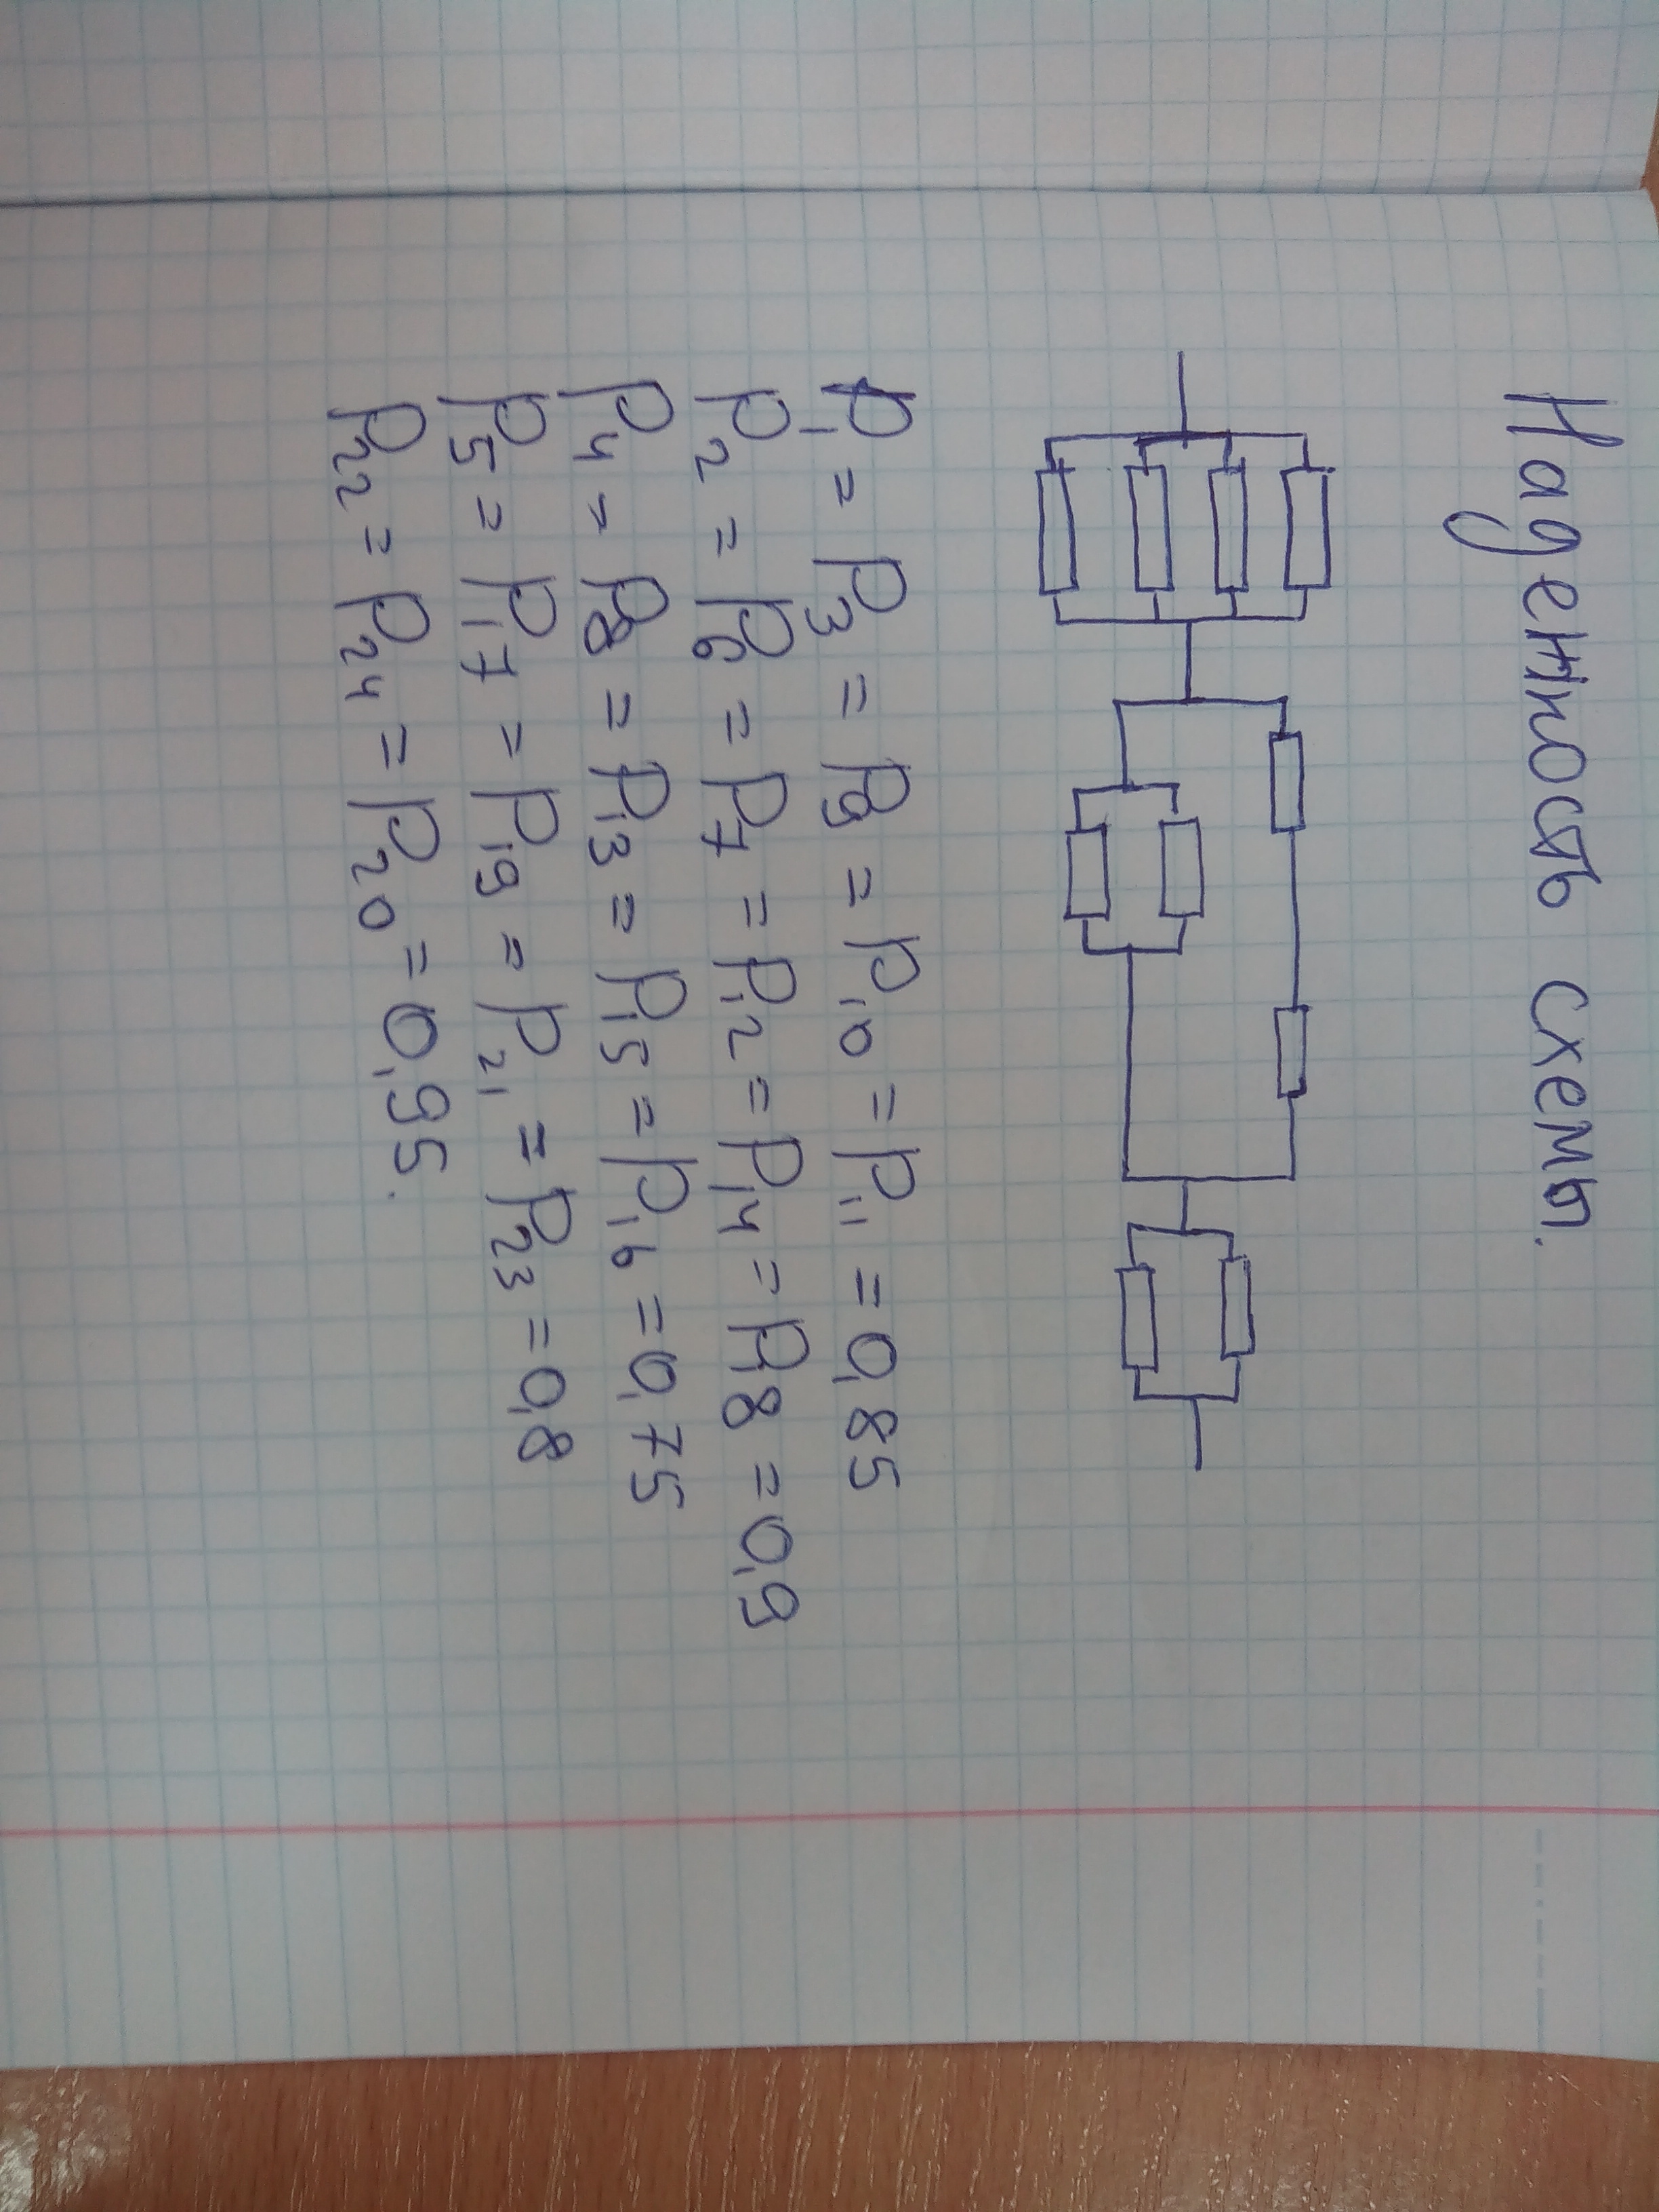 Надежность схемы.
P1 = P3 = P9 = P10 = P11 = 0,85
P2 = P6 = P7 = P12 = P14 = P18 = 0,9
P4 = P8 = P13 = P15 = P16 = 0,75
P5 = P17 = P19 = P21 = P23 = 0,8
P22 = P24 = P20 = 0,95.